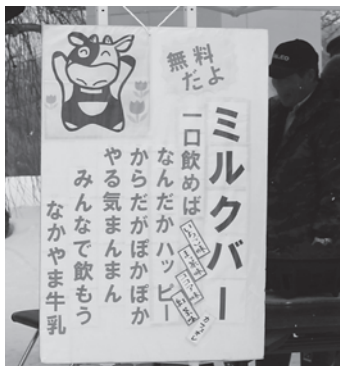 無料
だよ
ミルクバー
一口飲めば
なんだかハッピー
からだがぽかぽか
やる気まんまん
みんなで飲もう
なかやま牛乳